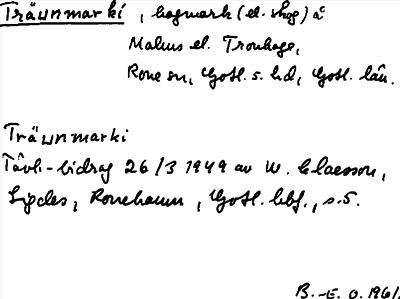 Träunmarki, hagmark (el. skog) å
Malms el. Tronhage,
Rone sn, Gotl. s. hd, Gotl. län.
Träunmarki
Tävl-bidrag 26/3 1949 av W. Claesson,
Ronehamn, Gotl. bbf., s. 5.
B.-E. O. 1961.